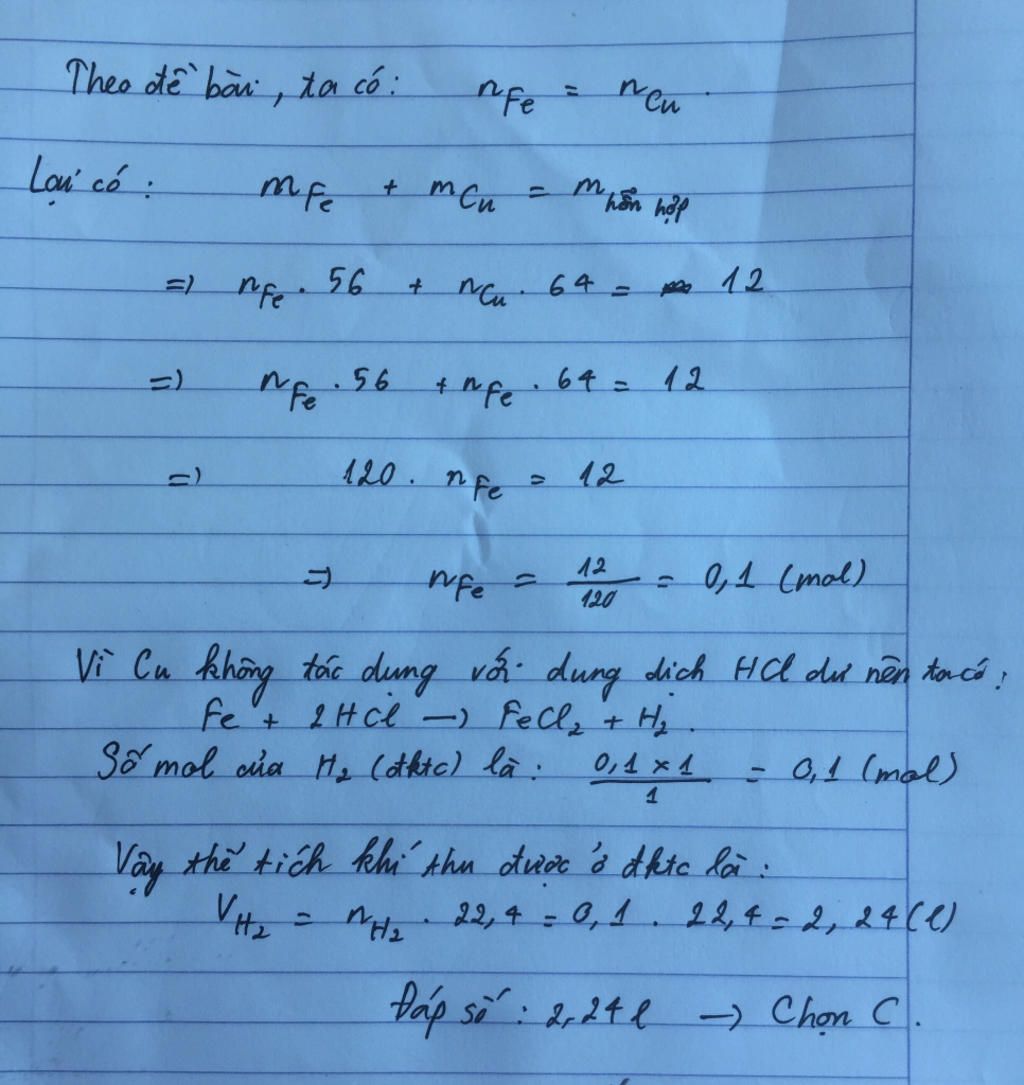 Theo đề bài, ta có: n_Fe = n_Cu.
Lại có: m_Fe + m_Cu = m_hỗn hợp
=> n_Fe . 56 + n_Cu . 64 = 12
=> n_Fe . 56 + n_Fe . 64 = 12
=> 120 . n_Fe = 12
=> n_Fe = 12/120 = 0,1 (mol)
Vì Cu không tác dụng với dung dịch HCl dư nên ta có:
Fe + 2HCl —> FeCl₂ + H₂.
Số mol của H₂ (đktc) là: (0,1 x 1)/1 = 0,1 (mol)
Vậy thể tích khí thu được ở đktc là:
V_H₂ = n_H₂ . 22,4 = 0,1 . 22,4 = 2,24 (l)
Đáp số: 2,24 l —> Chọn C.